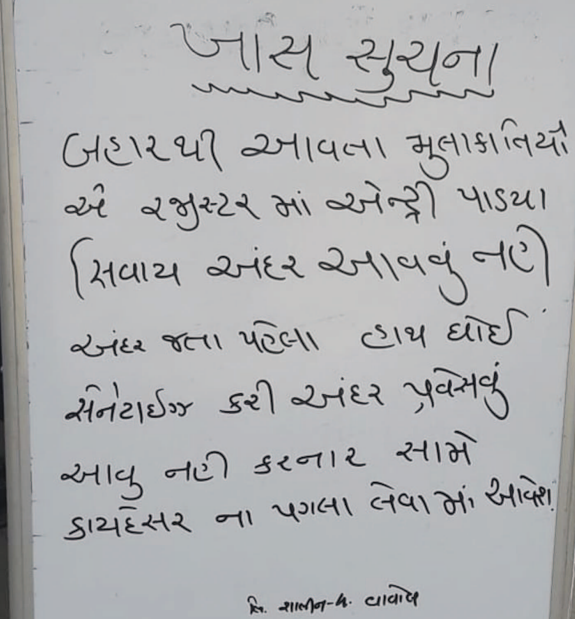 ખાસ સુચના
બહારથી આવતા મુલાકાતિયો
એ રજીસ્ટર માં એન્ટ્રી પાડયા
સિવાય અંદર આવવું નહી
અંદર જતા પહેલા હાથ ધોઈ
સેનેટાઈઝ કરી અંદર પ્રવેસવું
આવુ નહી કરનાર સામે
કાયદેસર ના પગલા લેવામાં આવેશ.
લિ. વાવોલ